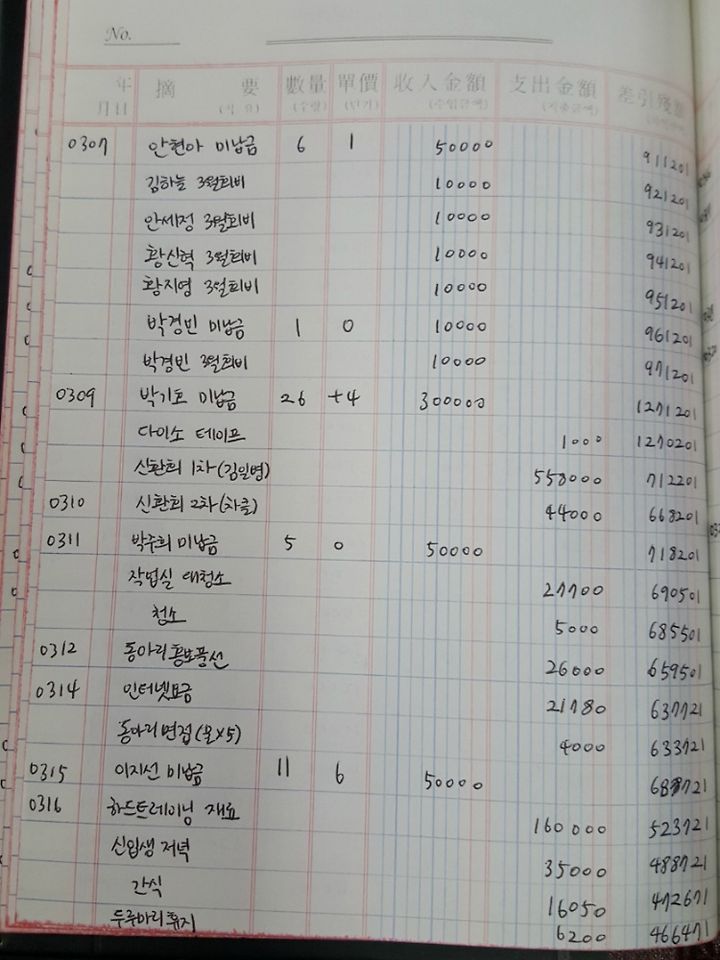 No.
年 月日 摘要 (적요) 數量 (수량) 單價 (단가) 收入金額 (수입금액) 支出金額 (지출금액) 差引殘
0307 안현아 미납금 6 1 50000 911201
김하늘 3월회비 10000 921201
안세정 3월회비 10000 931201
황신혁 3월회비 10000 941201
황지영 3월회비 10000 951201
박경빈 미납금 1 0 10000 961201
박경빈 3월회비 10000 971201
0309 박기호 미납금 26 +4 300000 1271201
다이소 테이프 1000 1270201
신환회 1차(김일병) 558000 712201
0310 신환회 2차(차클) 44000 668201
0311 박주희 미납금 5 0 50000 718201
작업실 대청소 27700 690501
청소 5000 685501
0312 동아리 홍보풍선 26000 659501
0314 인터넷요금 21780 637721
동아리 면접(물×5) 4000 633721
0315 이지선 미납금 11 6 50000 683721
0316 하드트레이닝 재료 160000 523721
신입생 저녁 35000 488721
간식 16050 472671
두루마리 휴지 6200 466471